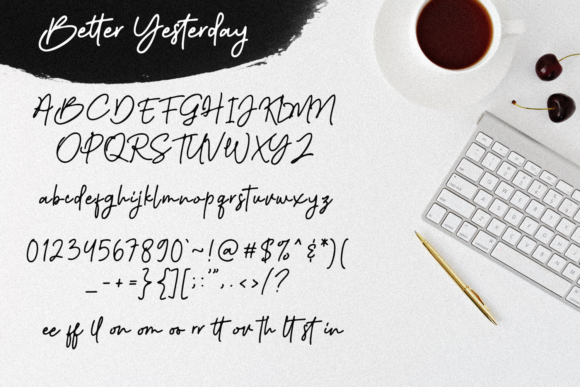 Better Yesterday
ABCDEFGHIJKLMN
OPQRSTUVWXYZ
abcdefghijklmnopqrstuvwxyz
01234567890`~!@#$%^&*)(
_-+=}{][;:'",.<>/?
ee ff ll on om oo rr tt ov th lt st in